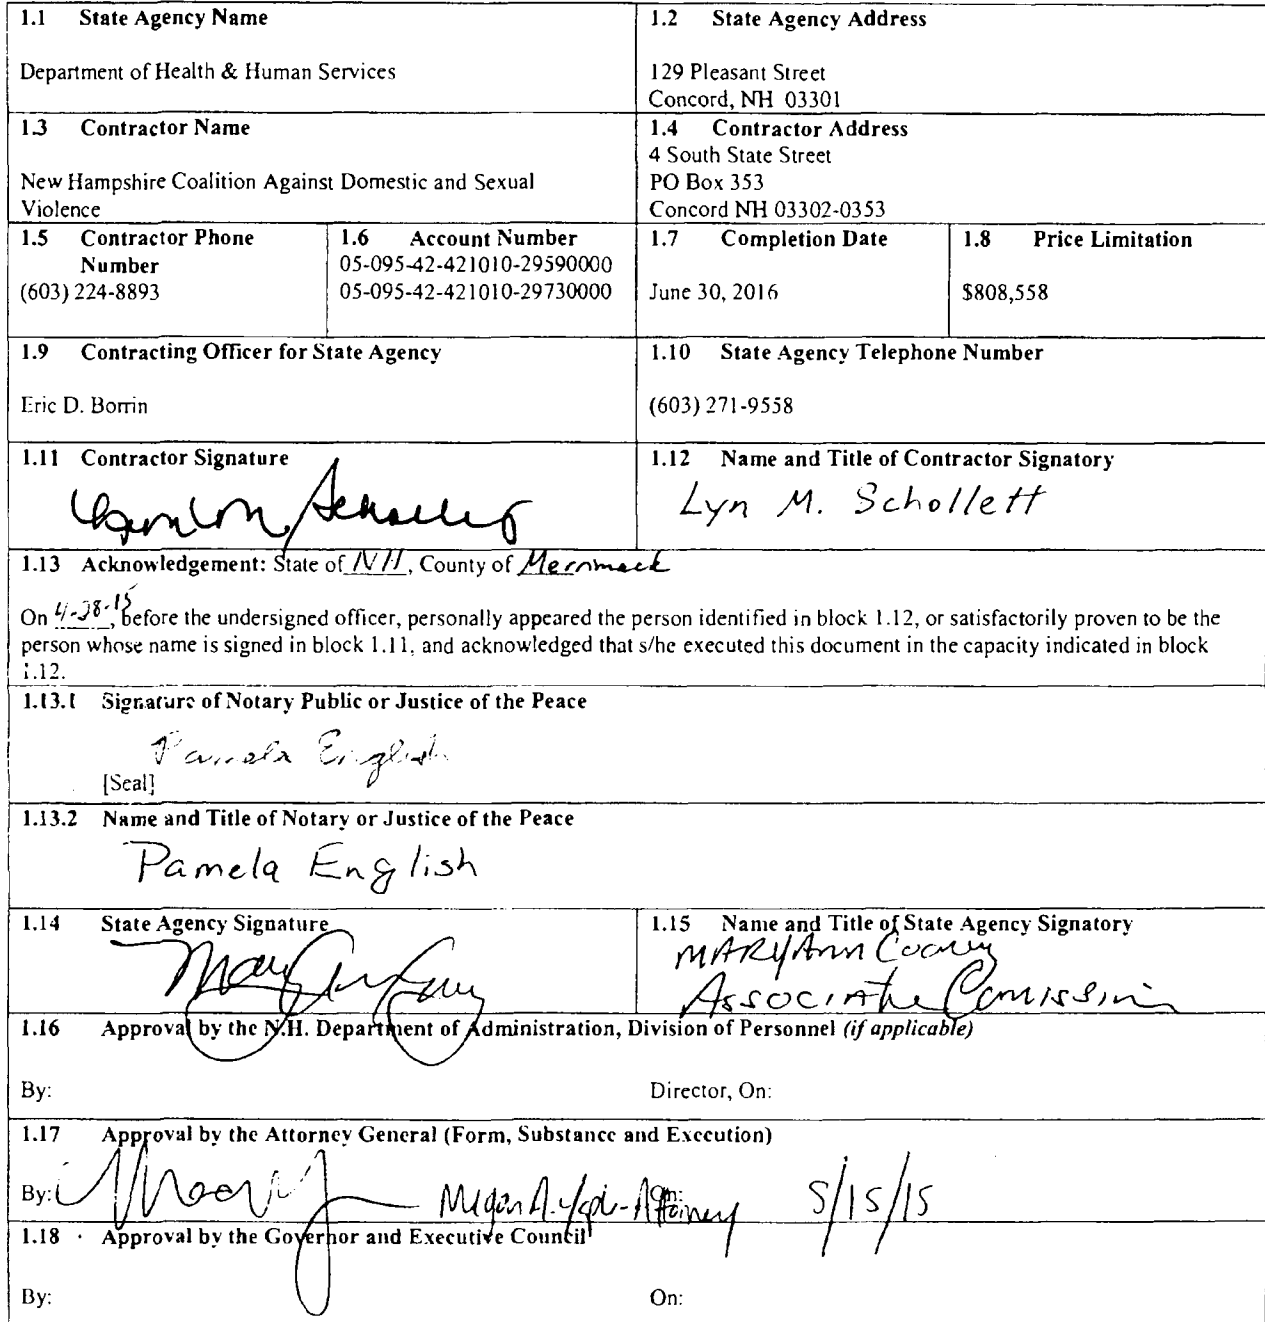 1.1 State Agency Name
Department of Health & Human Services
1.2 State Agency Address
129 Pleasant Street
Concord, NH 03301
1.3 Contractor Name
New Hampshire Coalition Against Domestic and Sexual
Violence
1.4 Contractor Address
4 South State Street
PO Box 353
Concord NH 03302-0353
1.5 Contractor Phone
Number
(603) 224-8893
1.6 Account Number
05-095-42-421010-29590000
05-095-42-421010-29730000
1.7 Completion Date
June 30, 2016
1.8 Price Limitation
$808,558
1.9 Contracting Officer for State Agency
Eric D. Borrin
1.10 State Agency Telephone Number
(603) 271-9558
1.11 Contractor Signature
1.12 Name and Title of Contractor Signatory
Lyn M. Schollett
1.13 Acknowledgement: State of NH, County of Merrimack
On 4-28-15, before the undersigned officer, personally appeared the person identified in block 1.12, or satisfactorily proven to be the
person whose name is signed in block 1.11, and acknowledged that s/he executed this document in the capacity indicated in block
1.12.
1.13.1 Signature of Notary Public or Justice of the Peace
Pamela English
[Seal]
1.13.2 Name and Title of Notary or Justice of the Peace
Pamela English
1.14 State Agency Signature
1.15 Name and Title of State Agency Signatory
MARYAnn Cooney
Associate
1.16 Approval by the N.H. Department of Administration, Division of Personnel (if applicable)
By:
Director, On:
1.17 Approval by the Attorney General (Form, Substance and Execution)
By: Megan A. - Attorney On: 5/15/15
1.18 Approval by the Governor and Executive Council
By:
On: